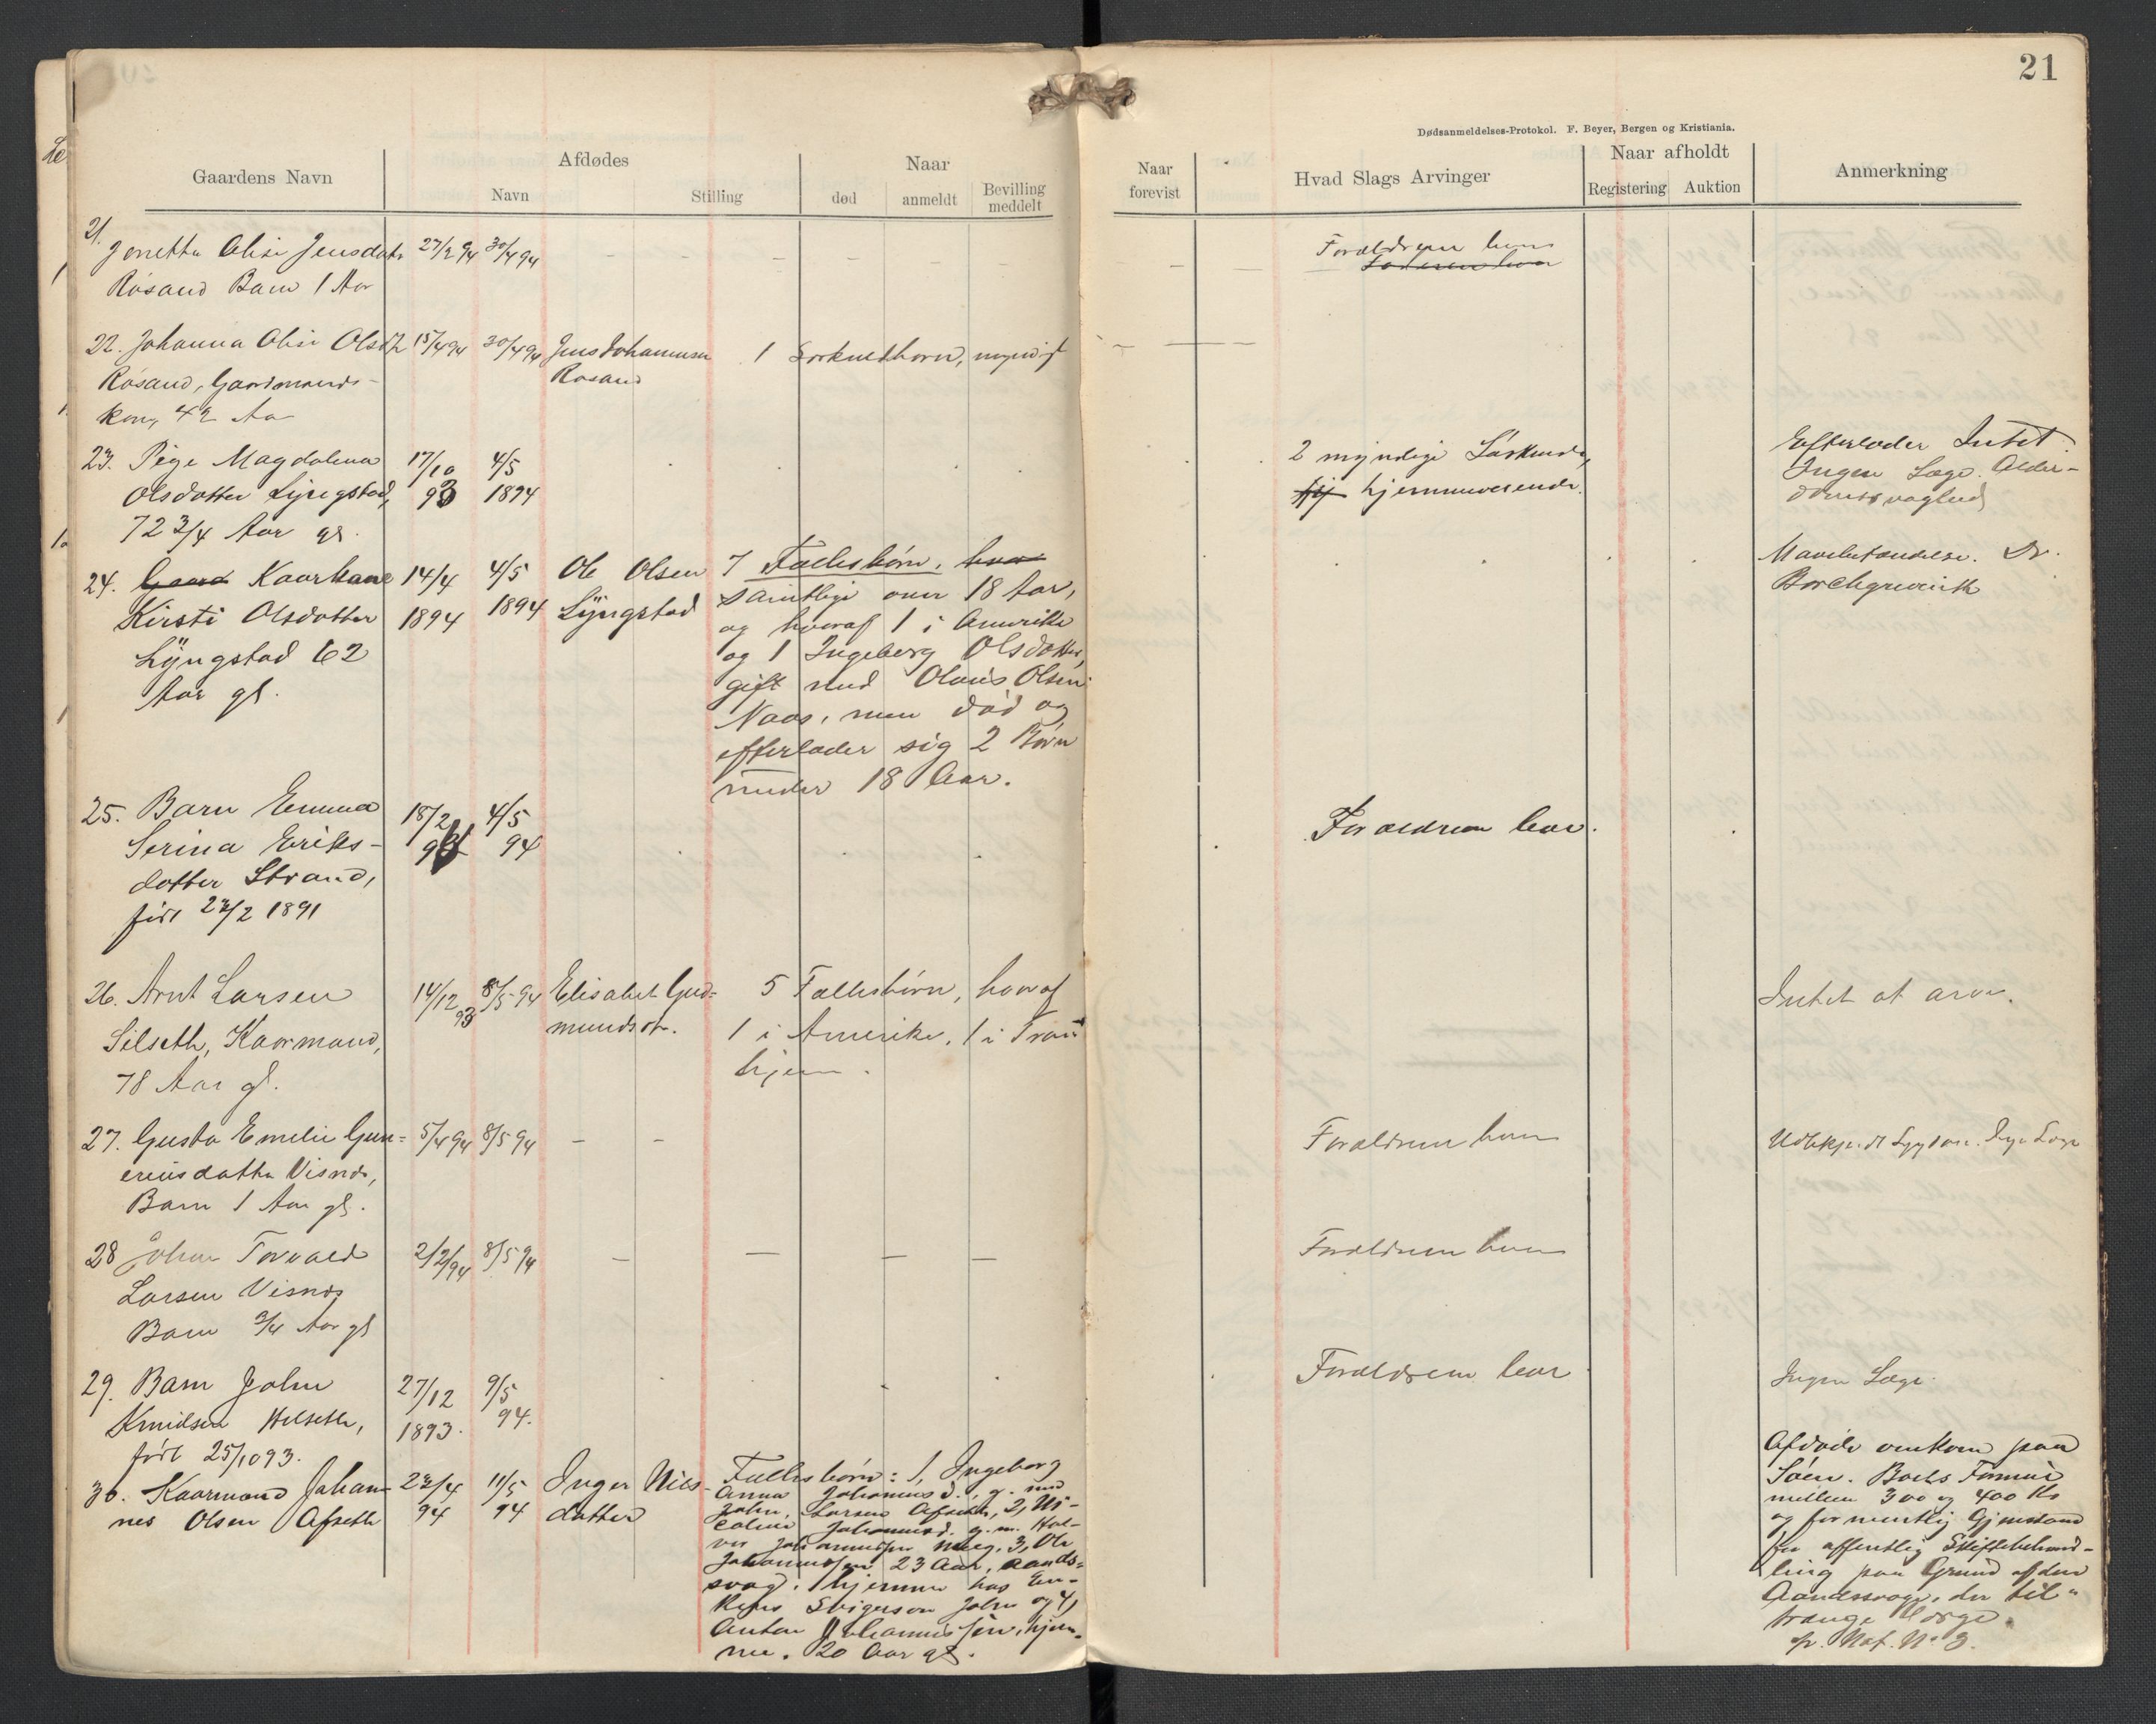 21
Dødsanmeldelses-Protokol. F. Beyer, Bergen og Kristiania.
Gaardens Navn
Afdødes
Navn
Stilling
Naar
død
anmeldt
Bevilling
meddelt
Naar
forevist
Hvad Slags Arvinger
Naar afholdt
Registering
Auktion
Anmerkning
21.
Jonetta Olise Jensdatr 27/2 94 30/4 94
Røsand Barn 1 Aar
Forældrene leve
22. Johanna Olise Olsdtr 15/4 94 30/4 94 Jens Johannesen 1 Særkuldbarn, myndigt
Røsand, Gaardmands-
Røsand
kone, 42 Aar
23. Pige Magdalena 17/10 4/5
Olsdatter Lyngstad, 93 1894
72 3/4 Aar gl.
2 myndige Søskende,
hjemmeværende.
Efterlader Intet.
Ingen Læge. Alder-
domssvaghed
24. Kaarkone 14/4 4/5 Ole Olsen 7 Fællesbørn,
Kirsti Olsdatter 1894 1894 Lyngstad samtlige over 18 Aar,
Lyngstad 62 og hvoraf 1 i Amerika
Aar gl. og 1 Ingeberg Olsdatter,
gift med Olaus Olsen
Naas, men død og
efterlader sig 2 Børn
under 18 Aar.
Mavebetændelse. Dr.
Borchgrevink
25. Barn Emma 18/2 4/5
Serina Eriks- 94 94
datter Strand,
født 22/2 1891
Forældrene lever.
26. Arnt Larsen 14/12 93 8/5 94 Elisabet Gud- 5 Fællesbørn, hvoraf
Silseth, Kaarmand, mundsdtr. 1 i Amerika, 1 i Trond
78 Aar gl. hjem.
Intet at arve.
27. Gusta Emelie Gun- 5/4 94 8/5 94
eriusdatter Visnes,
Barn 1 Aar gl.
Forældrene leve
28 Johan Torvald 2/2/94 8/5 94
Larsen Visnes
Barn 3/4 Aar gl
Forældrene leve
29. Barn John 27/12 9/5
Knudsen Helseth, 1893. 94.
født 25/10 93.
Forældrene lever
Ingen Læge.
30. Kaarmand Johan- 23/4 11/5 Inger Nils-
nes Olsen Afseth 94 94 datter
Fællesbørn: 1, Ingeborg
Anna Johannesd., g. med
John Larsen Afseth, 2, Ni-
coline Johannesd. g. m. Hal-
vor Johannessen, 3, Ole
Johannessen 23 Aar, aands-
svag, hjemme hos En-
kens Svigersøn John og 4,
Anton Johannessen, hjem-
me. 20 Aar gl.
Afdøde omkom paa
Søen. Boets Formue
mellem 300 og 400 Kr
og formentlig Gjenstand
for offentlig Skiftebehand-
ling paa Grund af den
Aandssvage, der til-
trænge Værge.